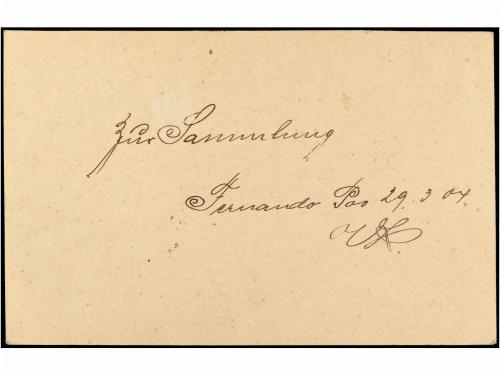 Zur Sammlung
Fernando Poo 29 3 04.